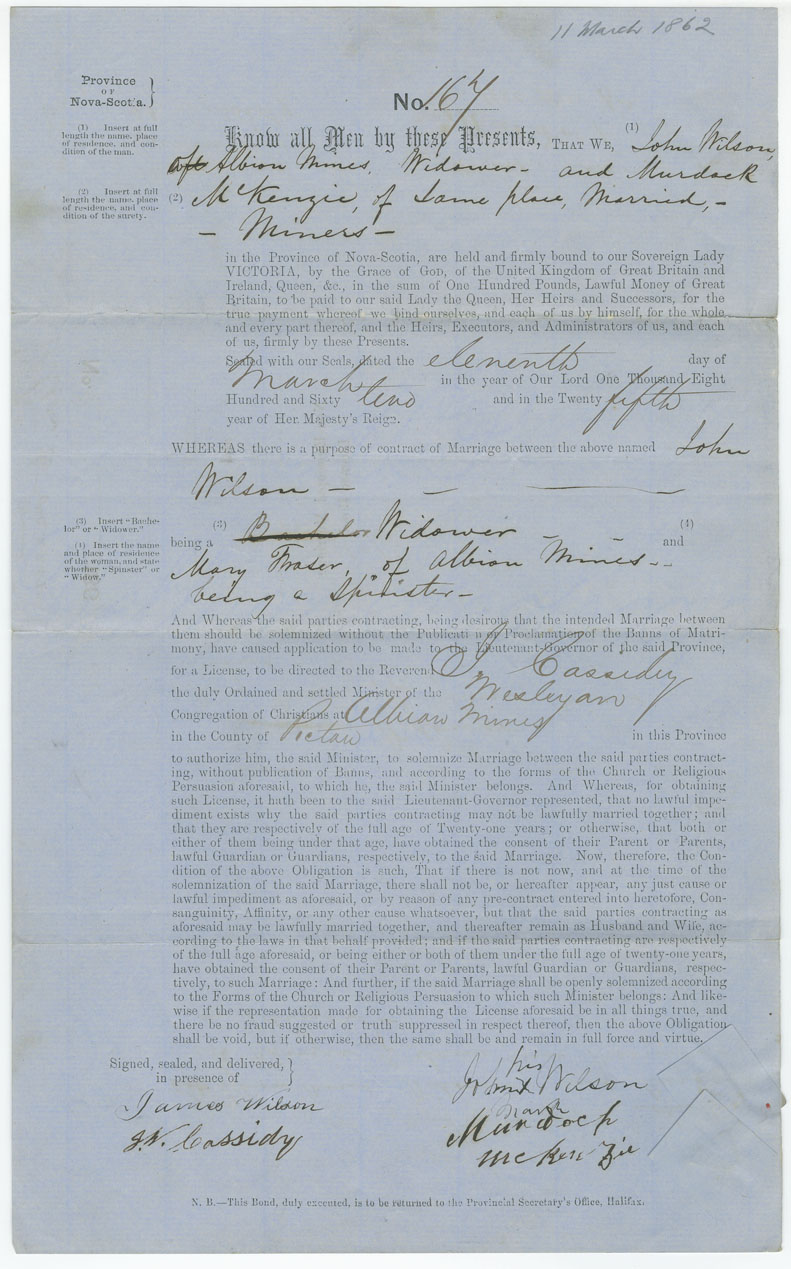 11 March 1862
Province
OF
Nova-Scotia.
No. 167
(1) Insert at full
length the name, place
of residence, and con-
dition of the man.
Know all Men by these Presents, THAT WE, (1) John Wilson,
of Albion Mines, Widower - and Murdock
(2) Insert at full
length the name, place
of residence, and con-
dition of the surety.
(2) McKenzie, of Same place, Married, -
- Miners -
in the Province of Nova-Scotia, are held and firmly bound to our Sovereign Lady
VICTORIA, by the Grace of GOD, of the United Kingdom of Great Britain and
Ireland, Queen, &c., in the sum of One Hundred Pounds, Lawful Money of Great
Britain, to be paid to our said Lady the Queen, Her Heirs and Successors, for the
true payment whereof we bind ourselves, and each of us by himself, for the whole
and every part thereof, and the Heirs, Executors, and Administrators of us, and each
of us, firmly by these Presents.
Sealed with our Seals, dated the eleventh day of
March in the year of Our Lord One Thousand Eight
Hundred and Sixty two and in the Twenty fifth
year of Her Majesty's Reign.
WHEREAS there is a purpose of contract of Marriage between the above named John
Wilson - - -
(3) Insert "Bache-
lor" or "Widower."
(4) Insert the name
and place of residence
of the woman, and state
whether "Spinster" or
"Widow."
being a (3) Bachelor Widower - - and (4)
Mary Fraser, of Albion Mines -
being a Spinister -
And Whereas the said parties contracting, being desirous that the intended Marriage between
them should be solemnized without the Publicati n or Proclamation of the Banns of Matri-
mony, have caused application to be made to the Lieutenant-Governor of the said Province,
for a License, to be directed to the Reverend J. Cassidy
the duly Ordained and settled Minister of the Wesleyan
Congregation of Christians at Albion Mines
in the County of Pictou in this Province
to authorize him, the said Minister, to solemnize Marriage between the said parties contract-
ing, without publication of Banns, and according to the forms of the Church or Religious
Persuasion aforesaid, to which he, the said Minister belongs. And Whereas, for obtaining
such License, it hath been to the said Lieutenant-Governor represented, that no lawful impe-
diment exists why the said parties contracting may not be lawfully married together; and
that they are respectively of the full age of Twenty-one years; or otherwise, that both or
either of them being under that age, have obtained the consent of their Parent or Parents,
lawful Guardian or Guardians, respectively, to the said Marriage. Now, therefore, the Con-
dition of the above Obligation is such, That if there is not now, and at the time of the
solemnization of the said Marriage, there shall not be, or hereafter appear, any just cause or
lawful impediment as aforesaid, or by reason of any pre-contract entered into heretofore, Con-
sanguinity, Affinity, or any other cause whatsoever, but that the said parties contracting as
aforesaid may be lawfully married together, and thereafter remain as Husband and Wife, ac-
cording to the laws in that behalf provided; and if the said parties contracting are respectively
of the full age aforesaid, or being either or both of them under the full age of twenty-one years,
have obtained the consent of their Parent or Parents, lawful Guardian or Guardians, respec-
tively, to such Marriage: And further, if the said Marriage shall be openly solemnized according
to the Forms of the Church or Religious Persuasion to which such Minister belongs: And like-
wise if the representation made for obtaining the License aforesaid be in all things true, and
there be no fraud suggested or truth suppressed in respect thereof, then the above Obligation
shall be void, but if otherwise, then the same shall be and remain in full force and virtue.
Signed, sealed, and delivered,
in presence of
James Wilson
J.W. Cassidy
his
John x Wilson
mark
Murdoch
McKenzie
N. B.—This Bond, duly executed, is to be returned to the Provincial Secretary's Office, Halifax.